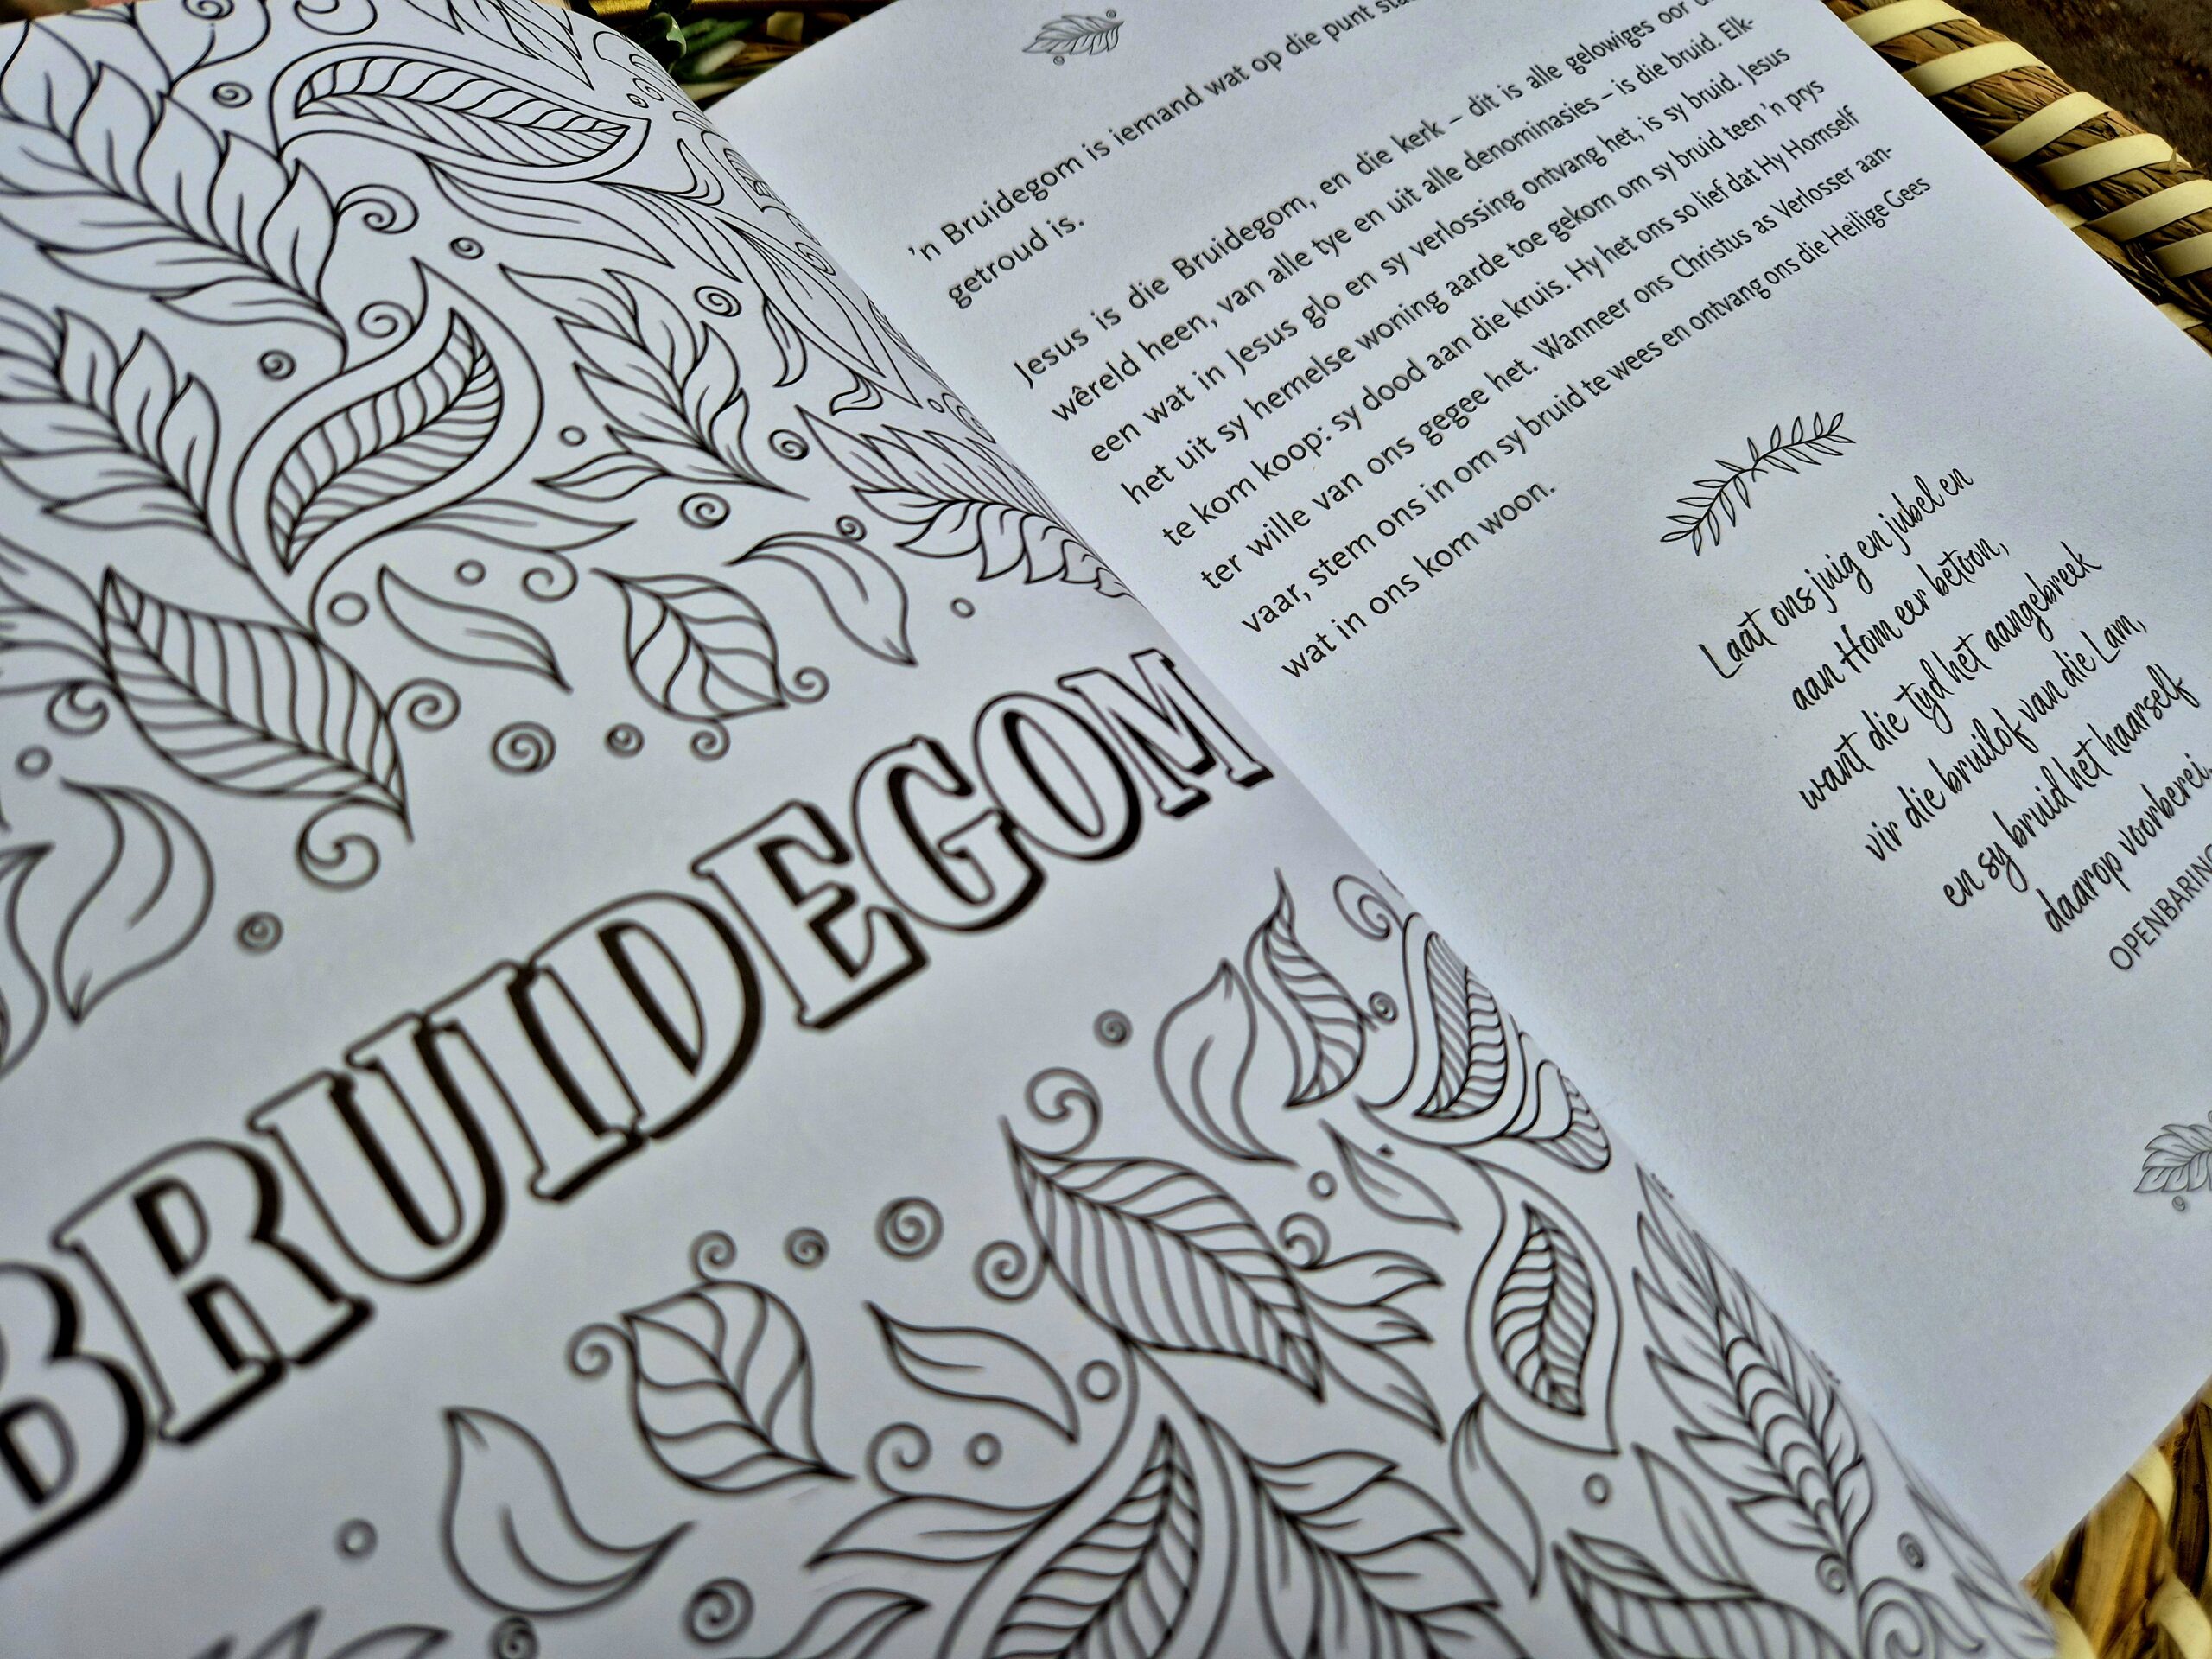 BRUIDEGOM
'n Bruidegom is iemand wat op die punt
getroud is.
Jesus is die Bruidegom, en die kerk – dit is alle gelowiges oor
wêreld heen, van alle tye en uit alle denominasies – is die bruid. Elk-
een wat in Jesus glo en sy verlossing ontvang het, is sy bruid. Jesus
het uit sy hemelse woning aarde toe gekom om sy bruid teen 'n prys
te kom koop: sy dood aan die kruis. Hy het ons so lief dat Hy Homself
ter wille van ons gegee het. Wanneer ons Christus as Verlosser aan-
vaar, stem ons in om sy bruid te wees en ontvang ons die Heilige Gees
wat in ons kom woon.
Laat ons juig en jubel en
aan Hom eer betoon,
want die tyd het aangebreek
vir die bruilof van die Lam,
en sy bruid het haarself
daarop voorberei.
OPENBARING